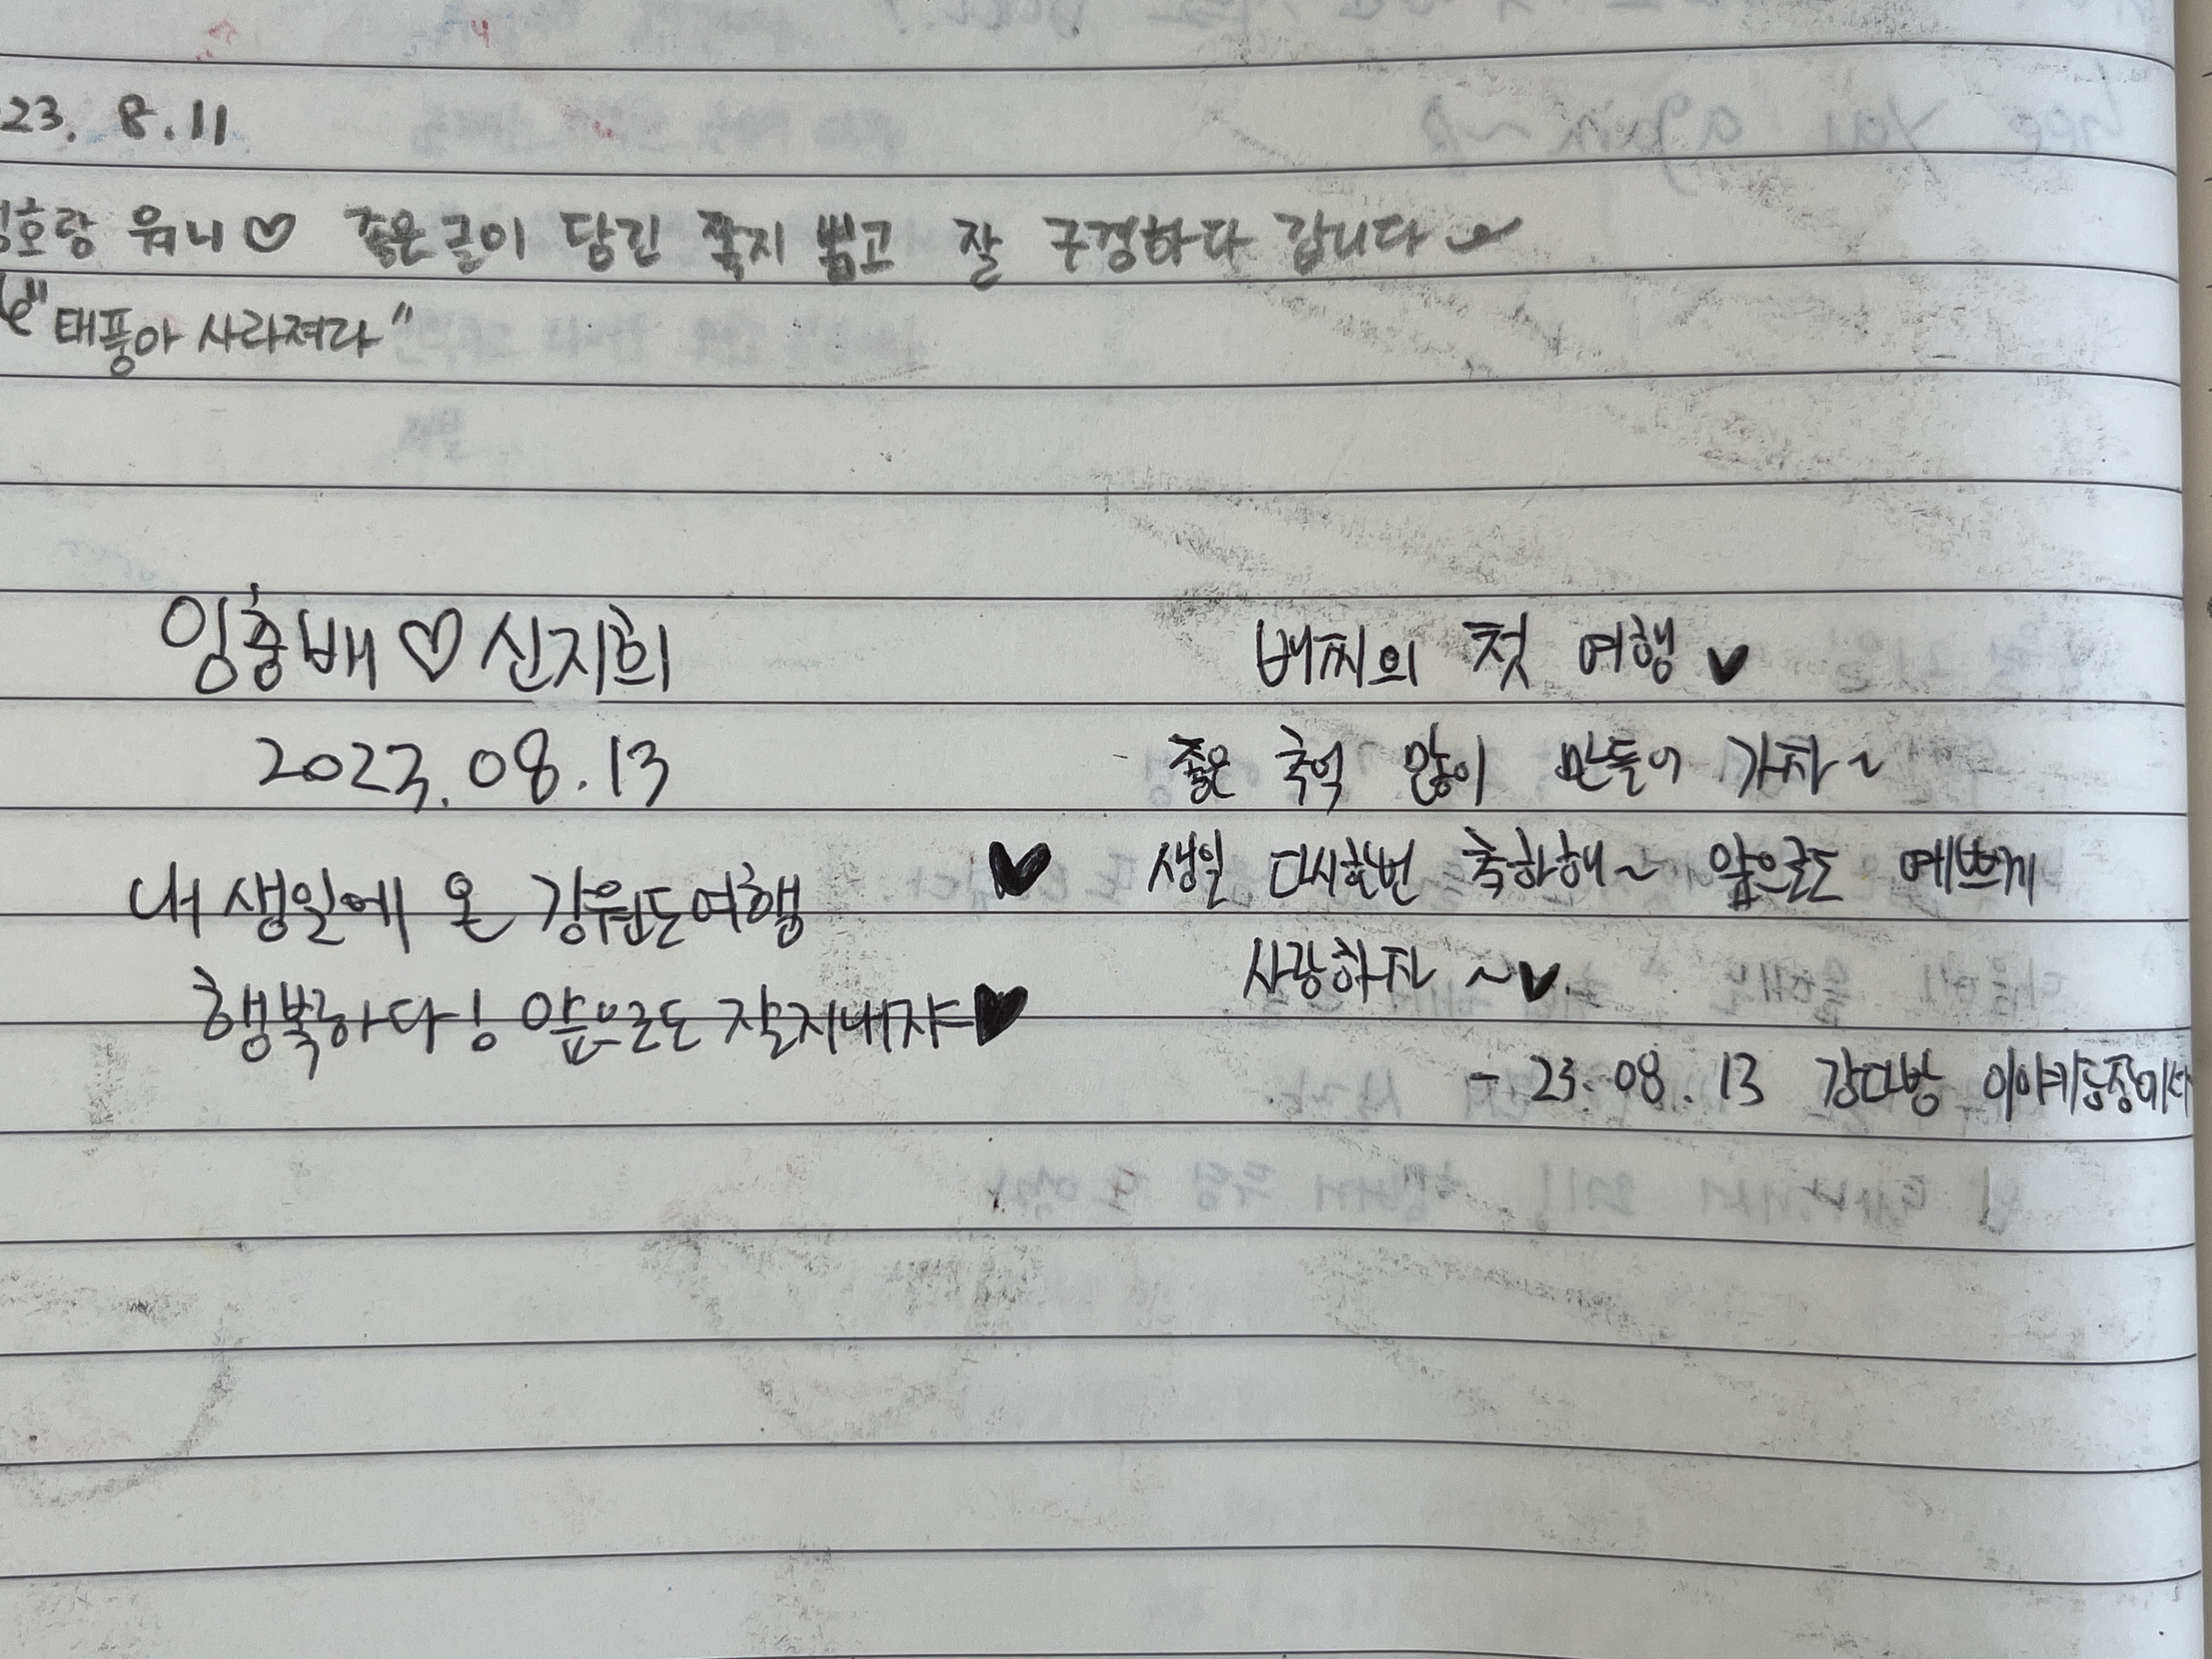 23. 8.11
호랑 워니♡ 좋은글이 담긴 쪽지 뽑고 잘 구경하다 갑니다~
"태풍아 사라져라"
임충배♡신지희
2023.08.13
내 생일에 온 강원도여행
행복하다! 앞으로도 잘지내쟈♥
배찌의 첫 여행 ♥
좋은 추억 많이 만들어 가자~
♥ 생일 다시한번 축하해~ 앞으로도 예쁘게
사랑하자 ~♥.
- 23. 08. 13 강다방 이야기공장에서